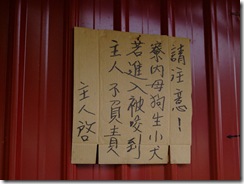 請注意！
寮內母狗生小犬
若進入被咬到
主人不負責
主人啓